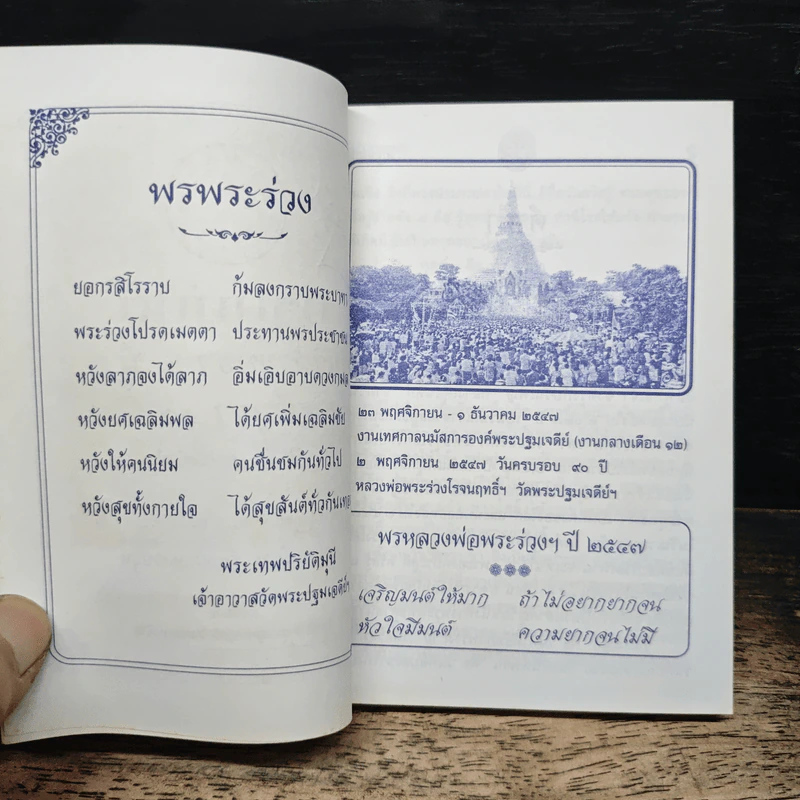 พรพระร่วง
ยอกรสิโรราบ ก้มลงกราบพระบาทา
พระร่วงโปรดเมตตา ประทานพรประชาชน
หวังลาภจงได้ลาภ อิ่มเอิบอาบดวงกมล
หวังยศเฉลิมพล ได้ยศเพิ่มเฉลิมชัย
หวังให้คนนิยม คนชื่นชมกันทั่วไป
หวังสุขทั้งกายใจ ได้สุขสันต์ทั่วกัน
พระเทพปริยัติมุนี
เจ้าอาวาสวัดพระปฐมเจดีย์ฯ
๒๓ พฤศจิกายน - ๑ ธันวาคม ๒๕๔๗
งานเทศกาลนมัสการองค์พระปฐมเจดีย์ (งานกลางเดือน ๑๒)
๒ พฤศจิกายน ๒๕๔๗ วันครบรอบ ๙๐ ปี
หลวงพ่อพระร่วงโรจนฤทธิ์ฯ วัดพระปฐมเจดีย์ฯ
พรหลวงพ่อพระร่วงฯ ปี ๒๕๔๗
เจริญมนต์ให้มาก ถ้าไม่อยากยากจน
หัวใจมีมนต์ ความยากจนไม่มี